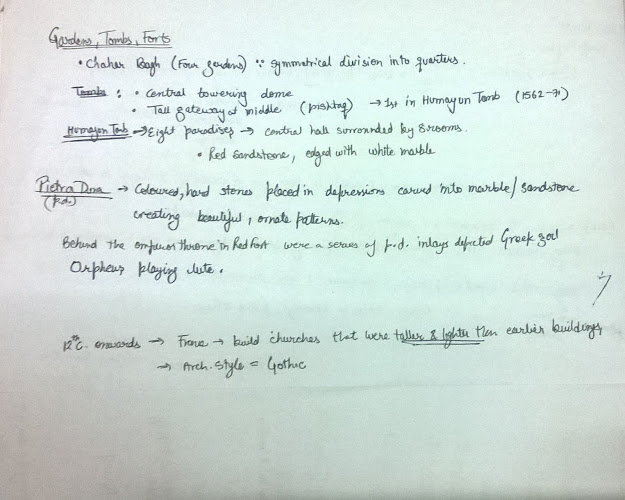 Gardens, Tombs, Forts
• Chahar Bagh (Four gardens) ∵ symmetrical division into quarters.
Tombs : • Central towering dome
• Tall gateway at middle (pishtaq) → 1st in Humayun Tomb (1562-71)
Humayun Tomb → Eight paradises → central hall surrounded by 8 rooms.
• Red Sandstone, edged with white marble
Pietra Dura → Coloured, hard stones placed in depressions carved into marble/sandstone
(p.d.) creating beautiful, ornate patterns.
Behind the emperor throne in Red Fort were a series of p.d. inlays depicted Greek god
Orpheus playing lute.
12th C. onwards → France → build churches that were taller & lighter than earlier buildings
→ Arch. Style = Gothic